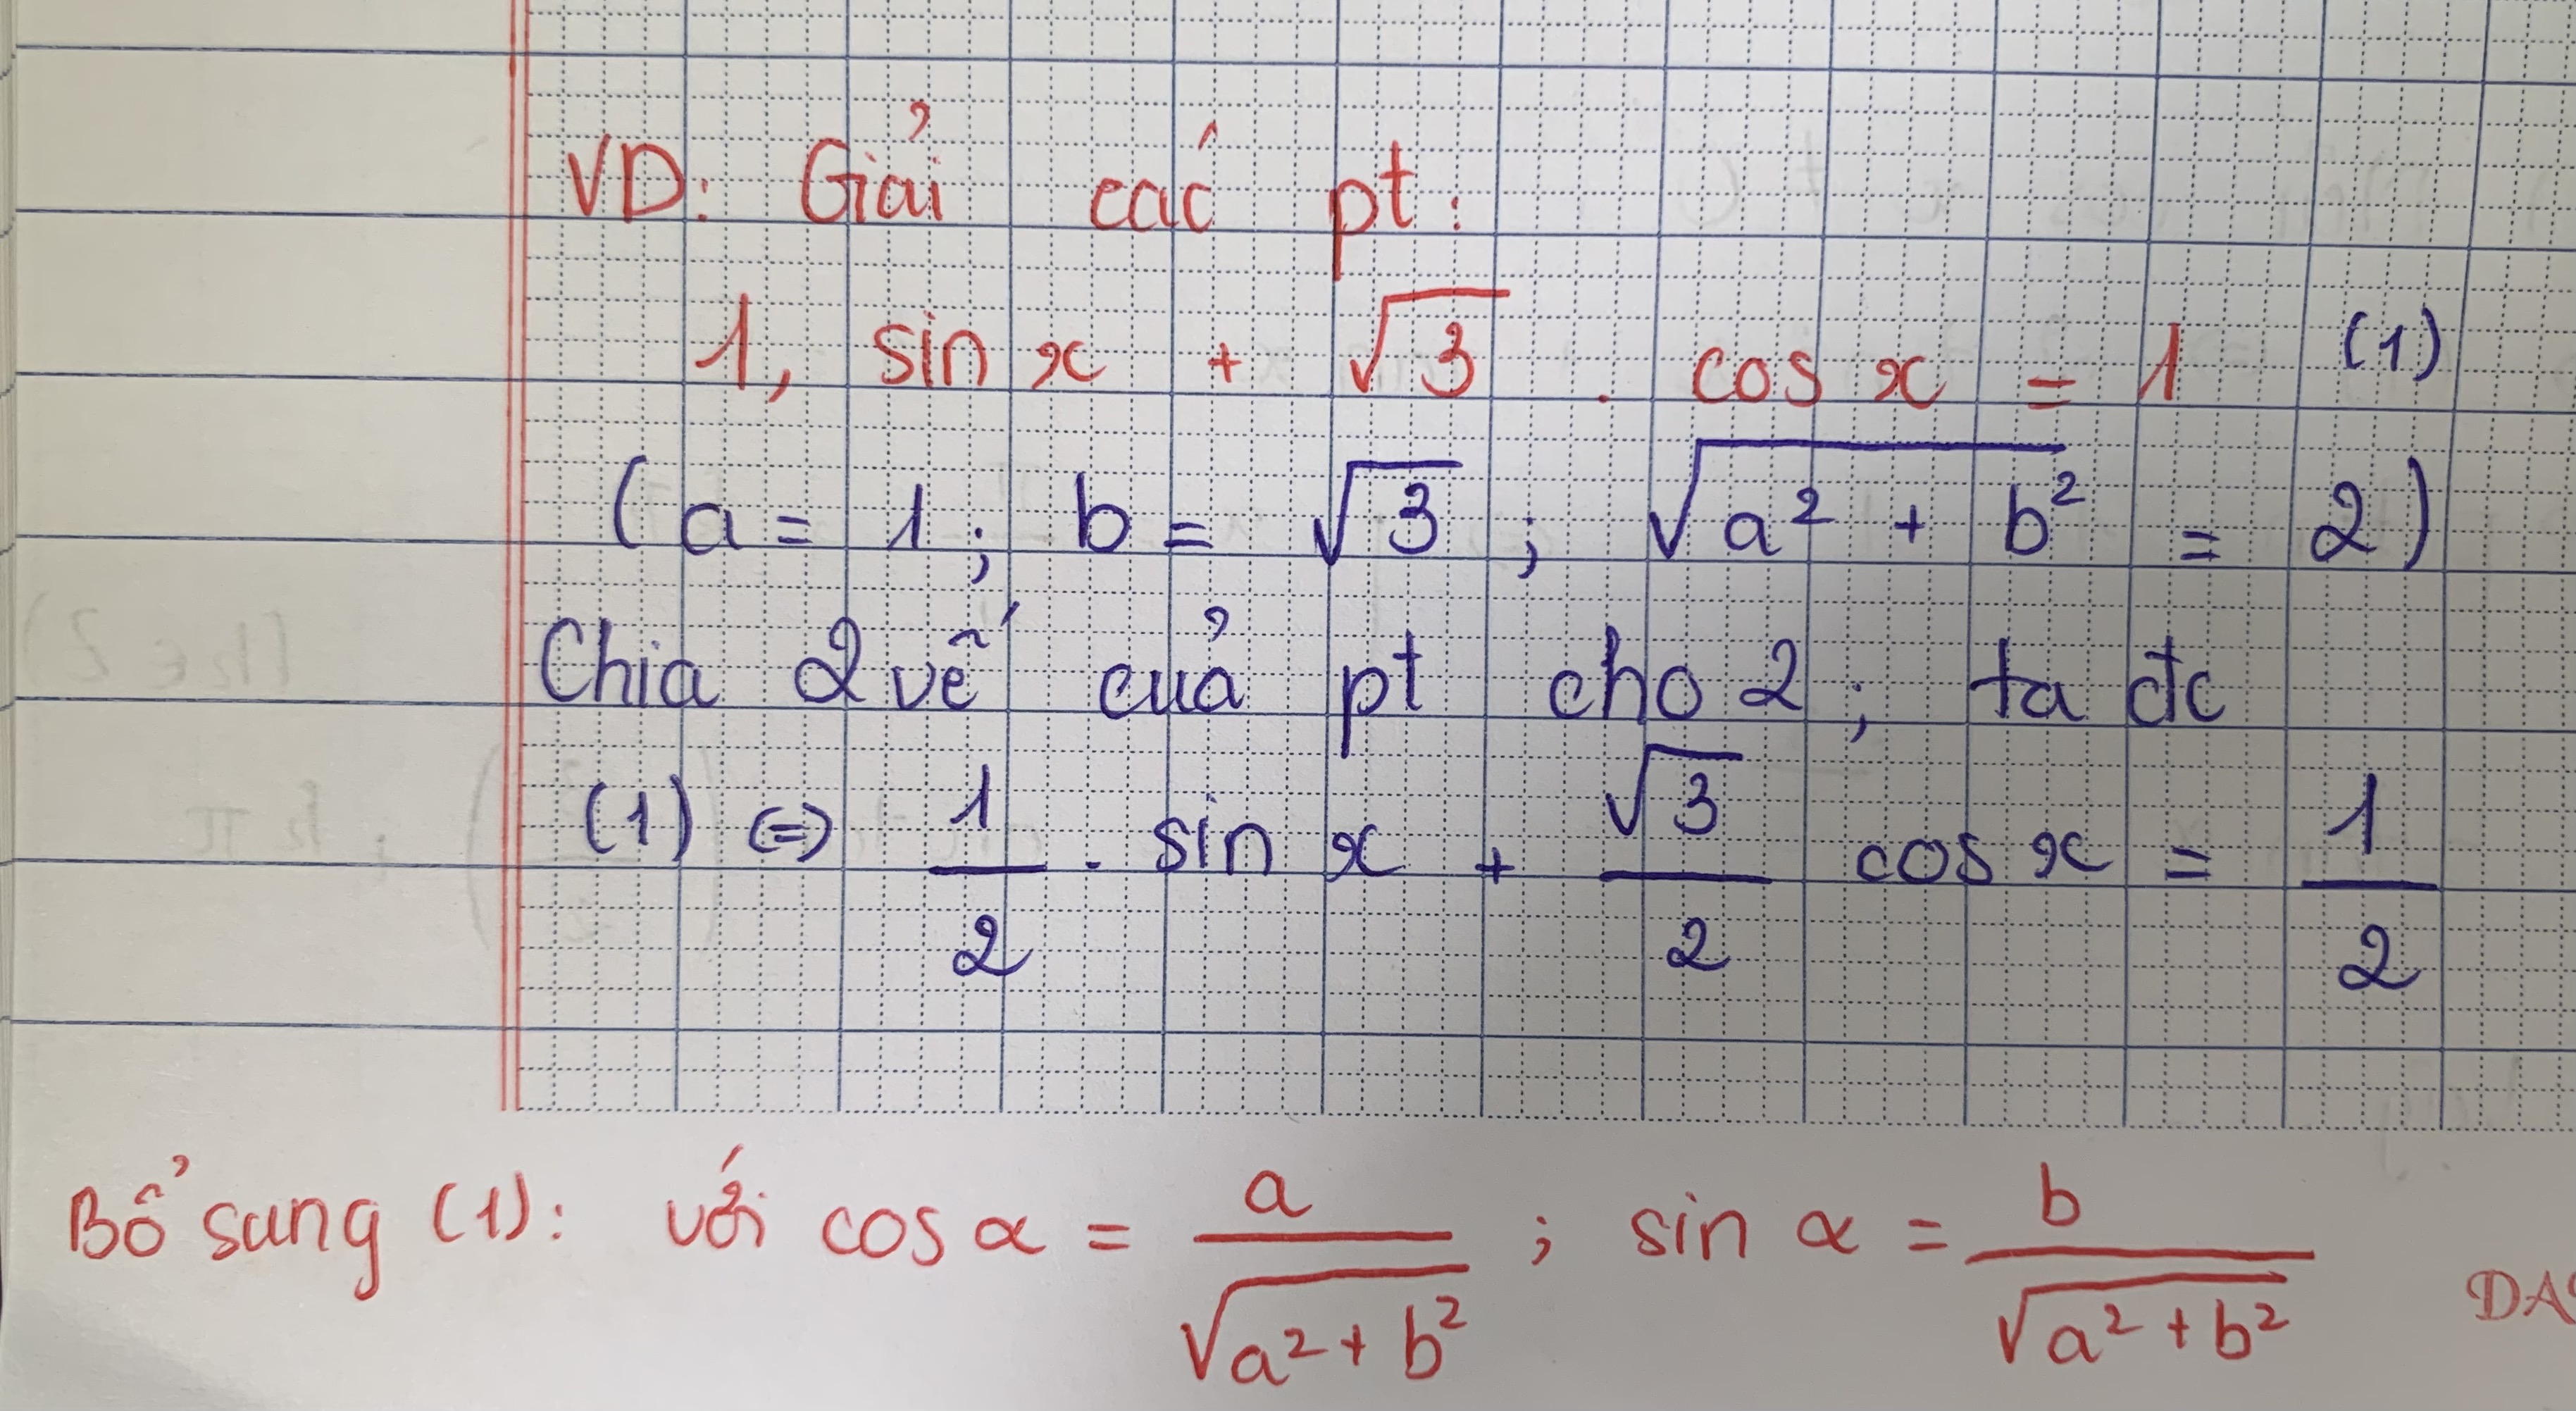 VD: Giải các pt:
1, sin x + √3 . cos x = 1 (1)
(a = 1; b = √3; √(a² + b²) = 2)
Chia 2 vế của pt cho 2; ta đc
(1) ⇔ 1/2 . sin x + √3/2 cos x = 1/2
Bổ sung (1): với cos α = a/√(a² + b²) ; sin α = b/√(a² + b²)